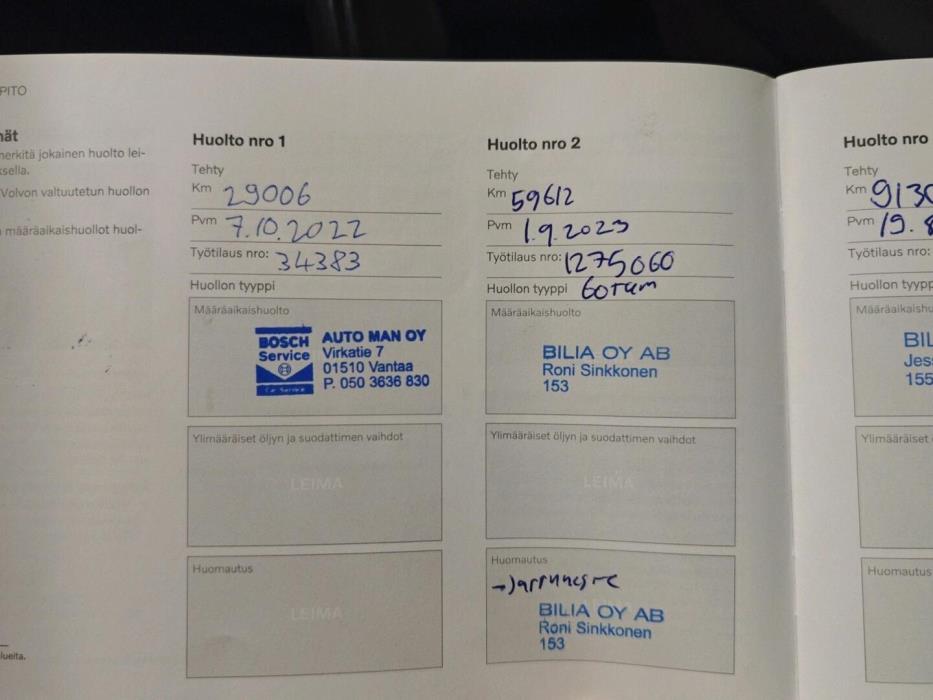 PITO
nät
nerkitä jokainen huolto lei-
ksella.
Volvon valtuutetun huollon
n määräaikaishuollot huol-
lueita.
Huolto nro 1
Tehty
Km 29006
Pvm 7.10.2022
Työtilaus nro: 34383
Huollon tyyppi
Määräaikaishuolto
BOSCH
Service
Car Service
AUTO MAN OY
Virkatie 7
01510 Vantaa
P. 050 3636 830
Ylimääräiset öljyn ja suodattimen vaihdot
LEIMA
Huomautus
LEIMA
Huolto nro 2
Tehty
Km 59612
Pvm 1.9.2023
Työtilaus nro: 1275060
Huollon tyyppi 60tkm
Määräaikaishuolto
BILIA OY AB
Roni Sinkkonen
153
Ylimääräiset öljyn ja suodattimen vaihdot
LEIMA
Huomautus
→Jarruneste
BILIA OY AB
Roni Sinkkonen
153
Huolto nro
Tehty
Km 9130
Pvm 19.8
Työtilaus nro:
Huollon tyypp
Määräaikaishu
BIL
Jess
155
Ylimääräiset ö
Huomautus